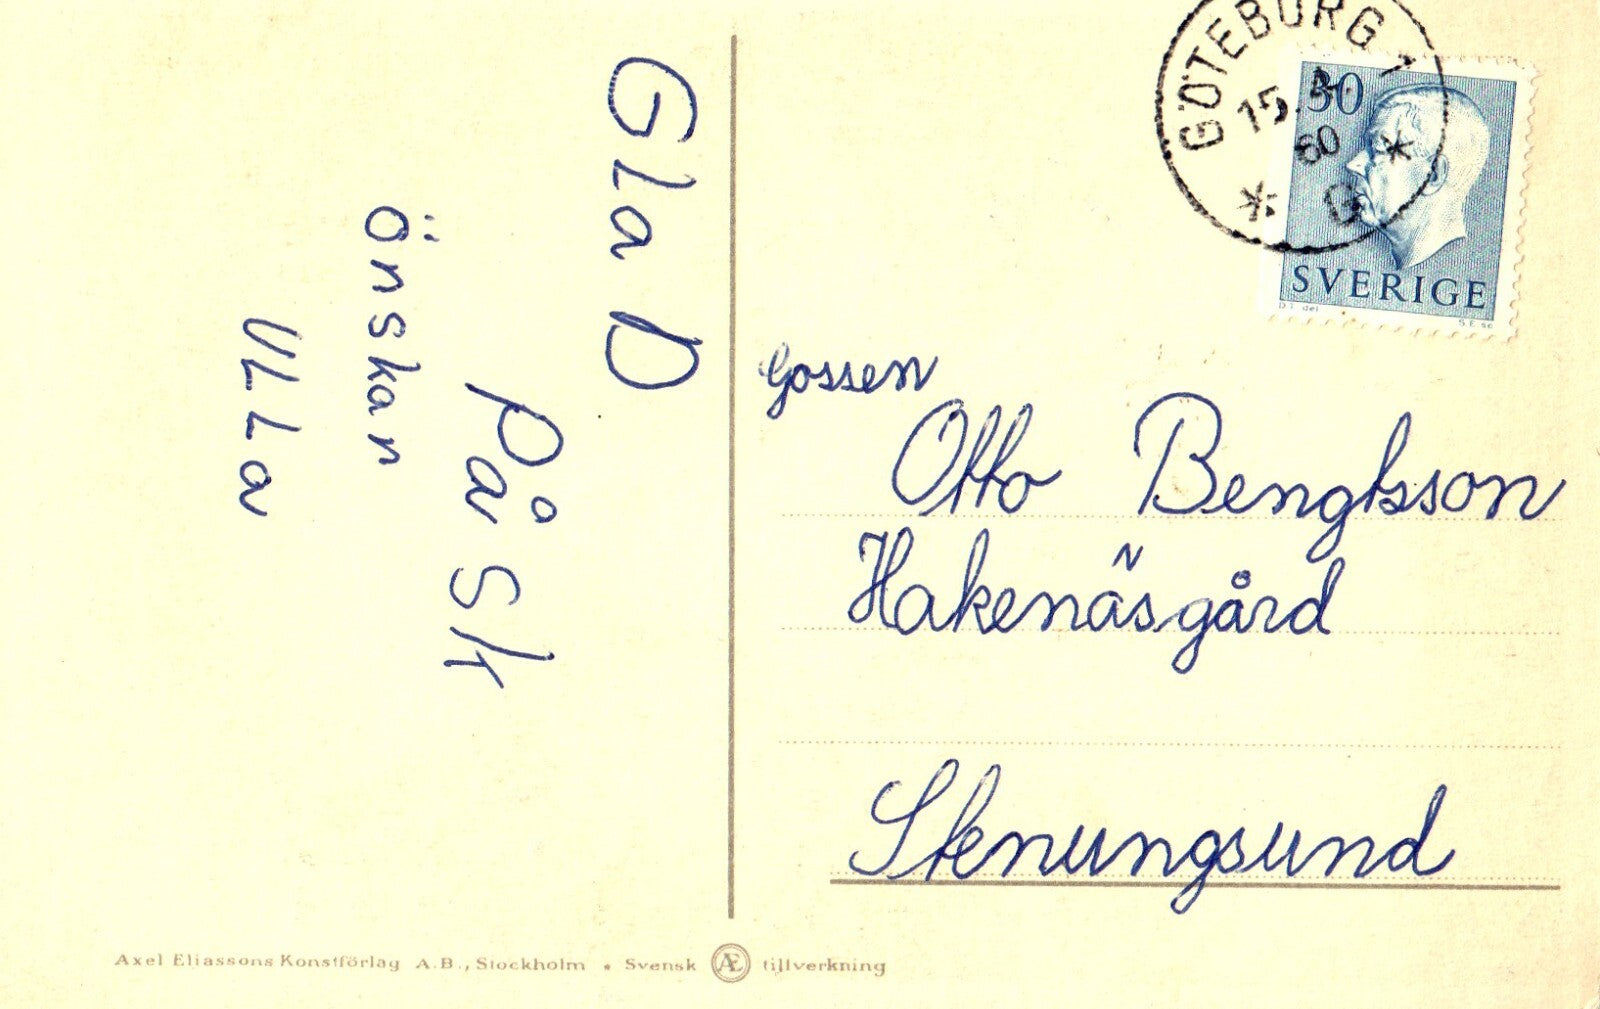 Gla D
På Sk
Önskar
ULLa
GÖTEBORG 1
15.4.
60
* G *
30
SVERIGE
S.E. sc
Gossen
Otto Bengtsson
Hakenäsgård
Stenungsund
Axel Eliassons Konstförlag A.B., Stockholm • Svensk Æ tillverkning